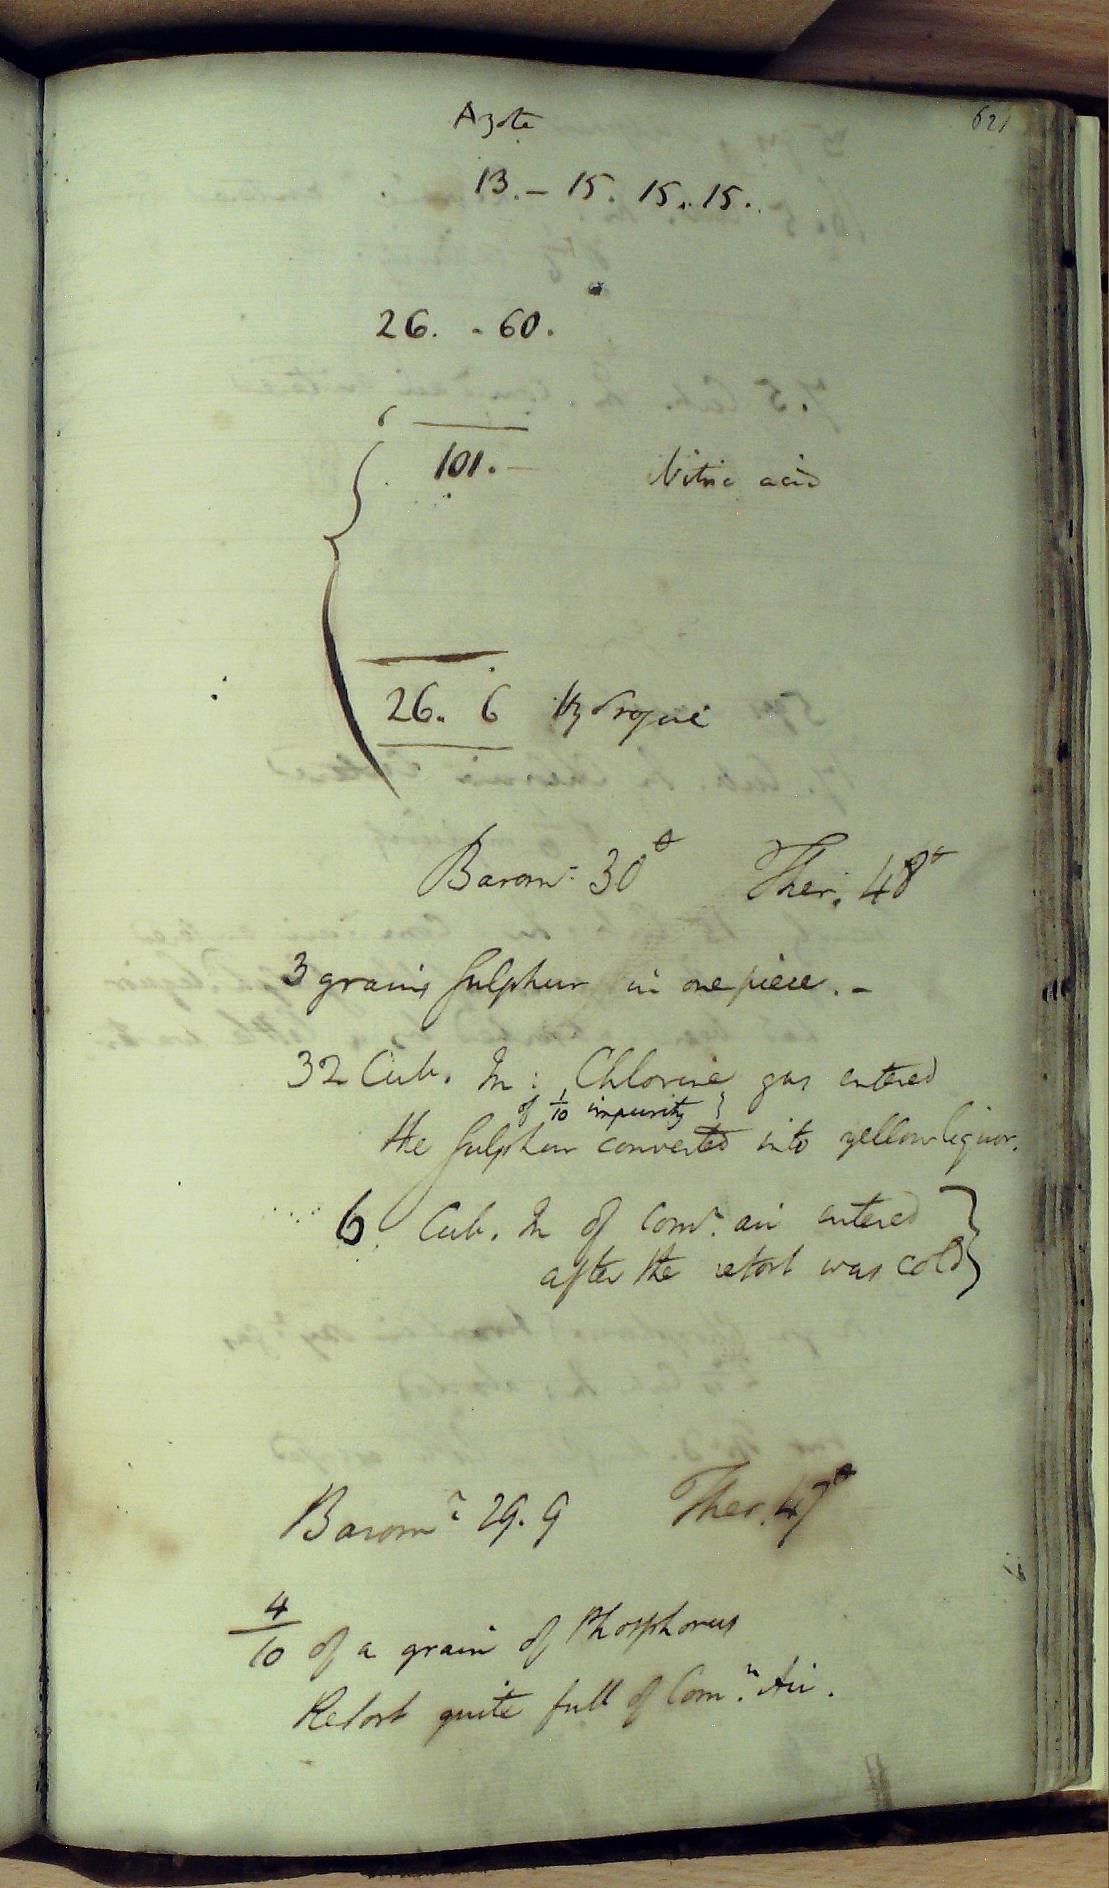 621
Azote
13. - 15. 15. 15.
26. - 60.
101. -
Nitric acid
26. 6 Hydrogene
Barom.r 30° Ther. 48°
3 grains Sulphur in one piece. -
32 Cub. In: Chlorine gas entered
of 1/10 impurity }
the Sulphur converted into yellow liquor.
6 Cub. In of Com.n air entered
after the retort was cold }
Barom.r 29.9 Ther. 47°
4/10 of a grain of Phosphorus
Retort quite full of Com.n Air.